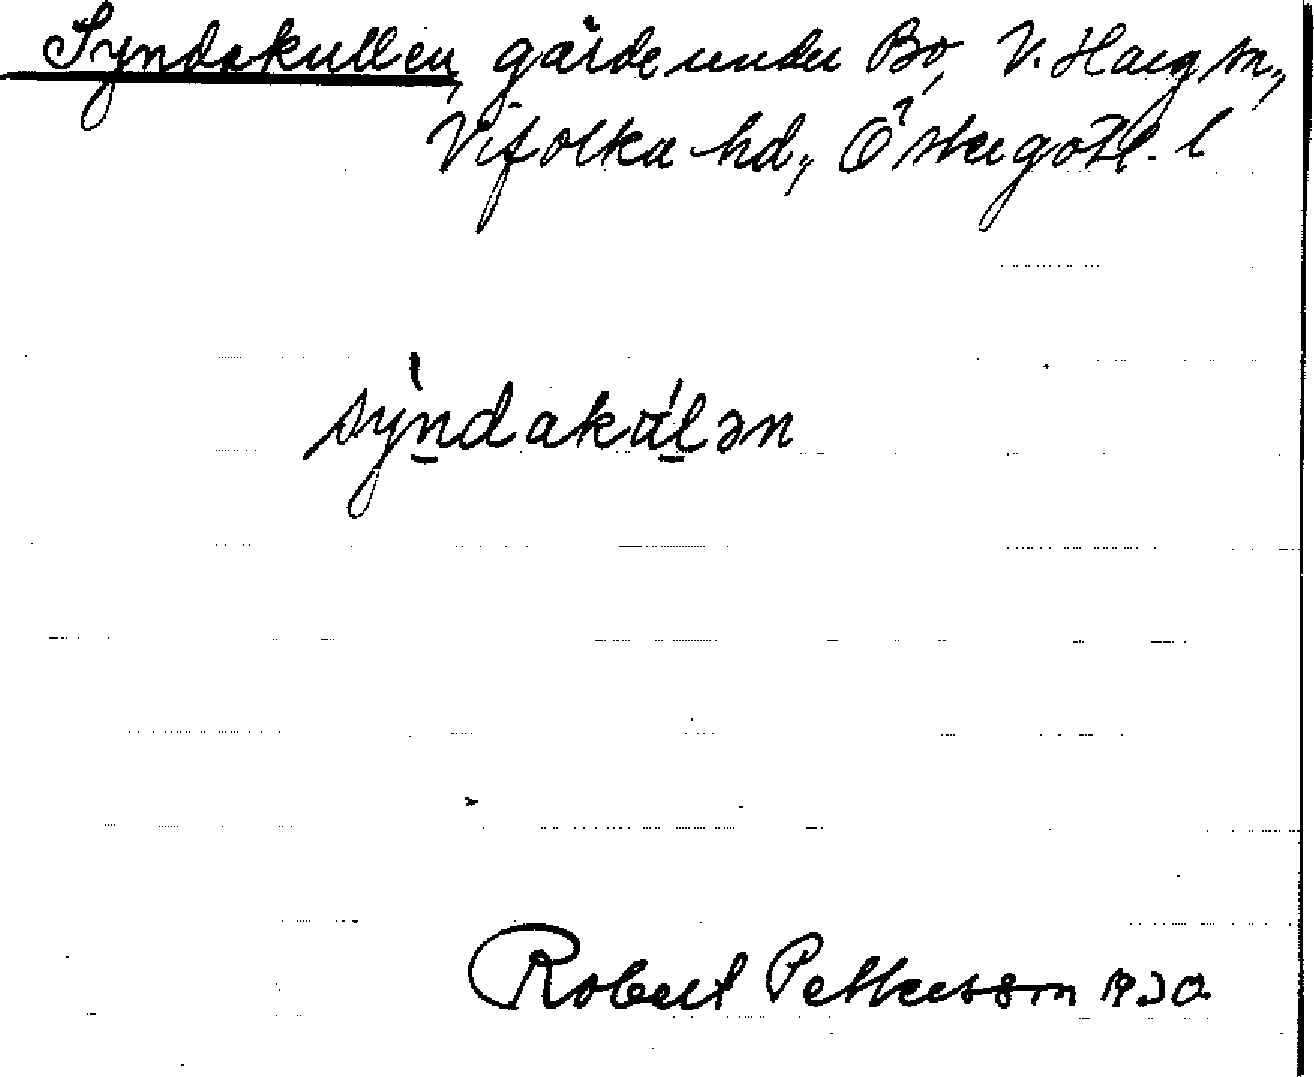 Syndakullen, gärde under Bo, V. Harg sn,
Vifolka hd, Östergötl. l
sỳndakúlən
Robert Pettersson 1930